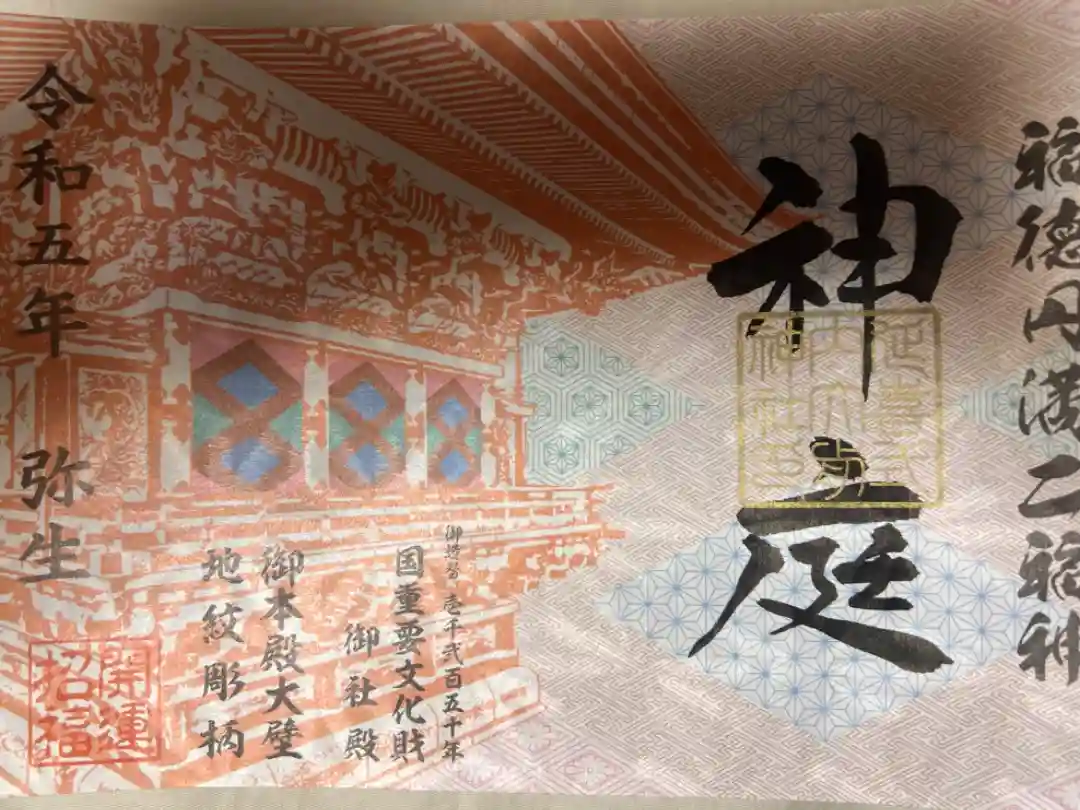 福徳円満二福神
神庭
延喜式
壱千弐百五十年
国重要文化財
御社殿
御本殿大壁
地紋彫柄
令和五年 弥生
開運
招福